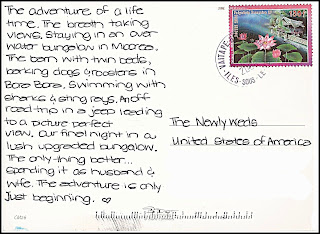 The adventure of a life
time. The breath taking
views. Staying in an over
water bungalow in Moorea.
The barn with twin beds,
barking dogs & roosters in
Bora Bora. Swimming with
sharks & sting rays. An off
road trip in a jeep leading
to a picture perfect
view. Our final night in a
lush upgraded bungalow.
The only thing better...
spending it as husband &
wife. The adventure is only
just beginning. ♡
The Newly Weds
United States of America
VAITAPE
ILES-SOUS LE